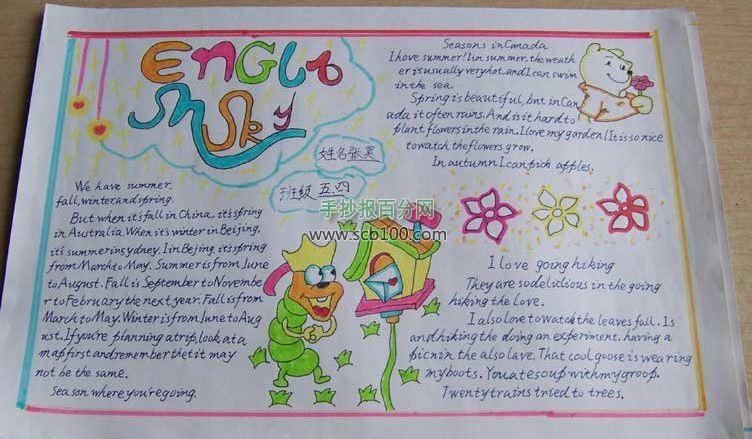 EnGLI
SMSky
姓名张昊
班级五四
手抄报百分网
www.scb100.com
We have summer,
fall, winter and spring.
But when it's fall in China, it's spring
in Australia. When it's winter in Beijing,
it's summer in sydney. In Bejing, it's spring
from March to May. Summer is from June
to August. Fall is September to Novembe
r to February the next year. Fall is from
March to May. Winter is from June to Aug
ust. If you're planning a trip, look at a
map first and remember thet it may
not be the same.
Season where you're going.
Seasons in Canada
I hove summer! Iin summer. the weath
er is usually very hot. and I can swim
in the sea.
Spring is beautiful, but in Can
ada it often rains. And is it hard to
plant flowers in the rain. I love my garden! It is so nice
to watch the flowers grow.
In autumn I can pick apples.
I love going hiking
They are so delicious in the going
hiking the love.
I also love to watch the leaves fall. Is
and hiking the doing an experiment. having a
picnin the also lave. That cool goose is wearing
my boots. You ate soup with my groop.
Twenty trains tried to trees.